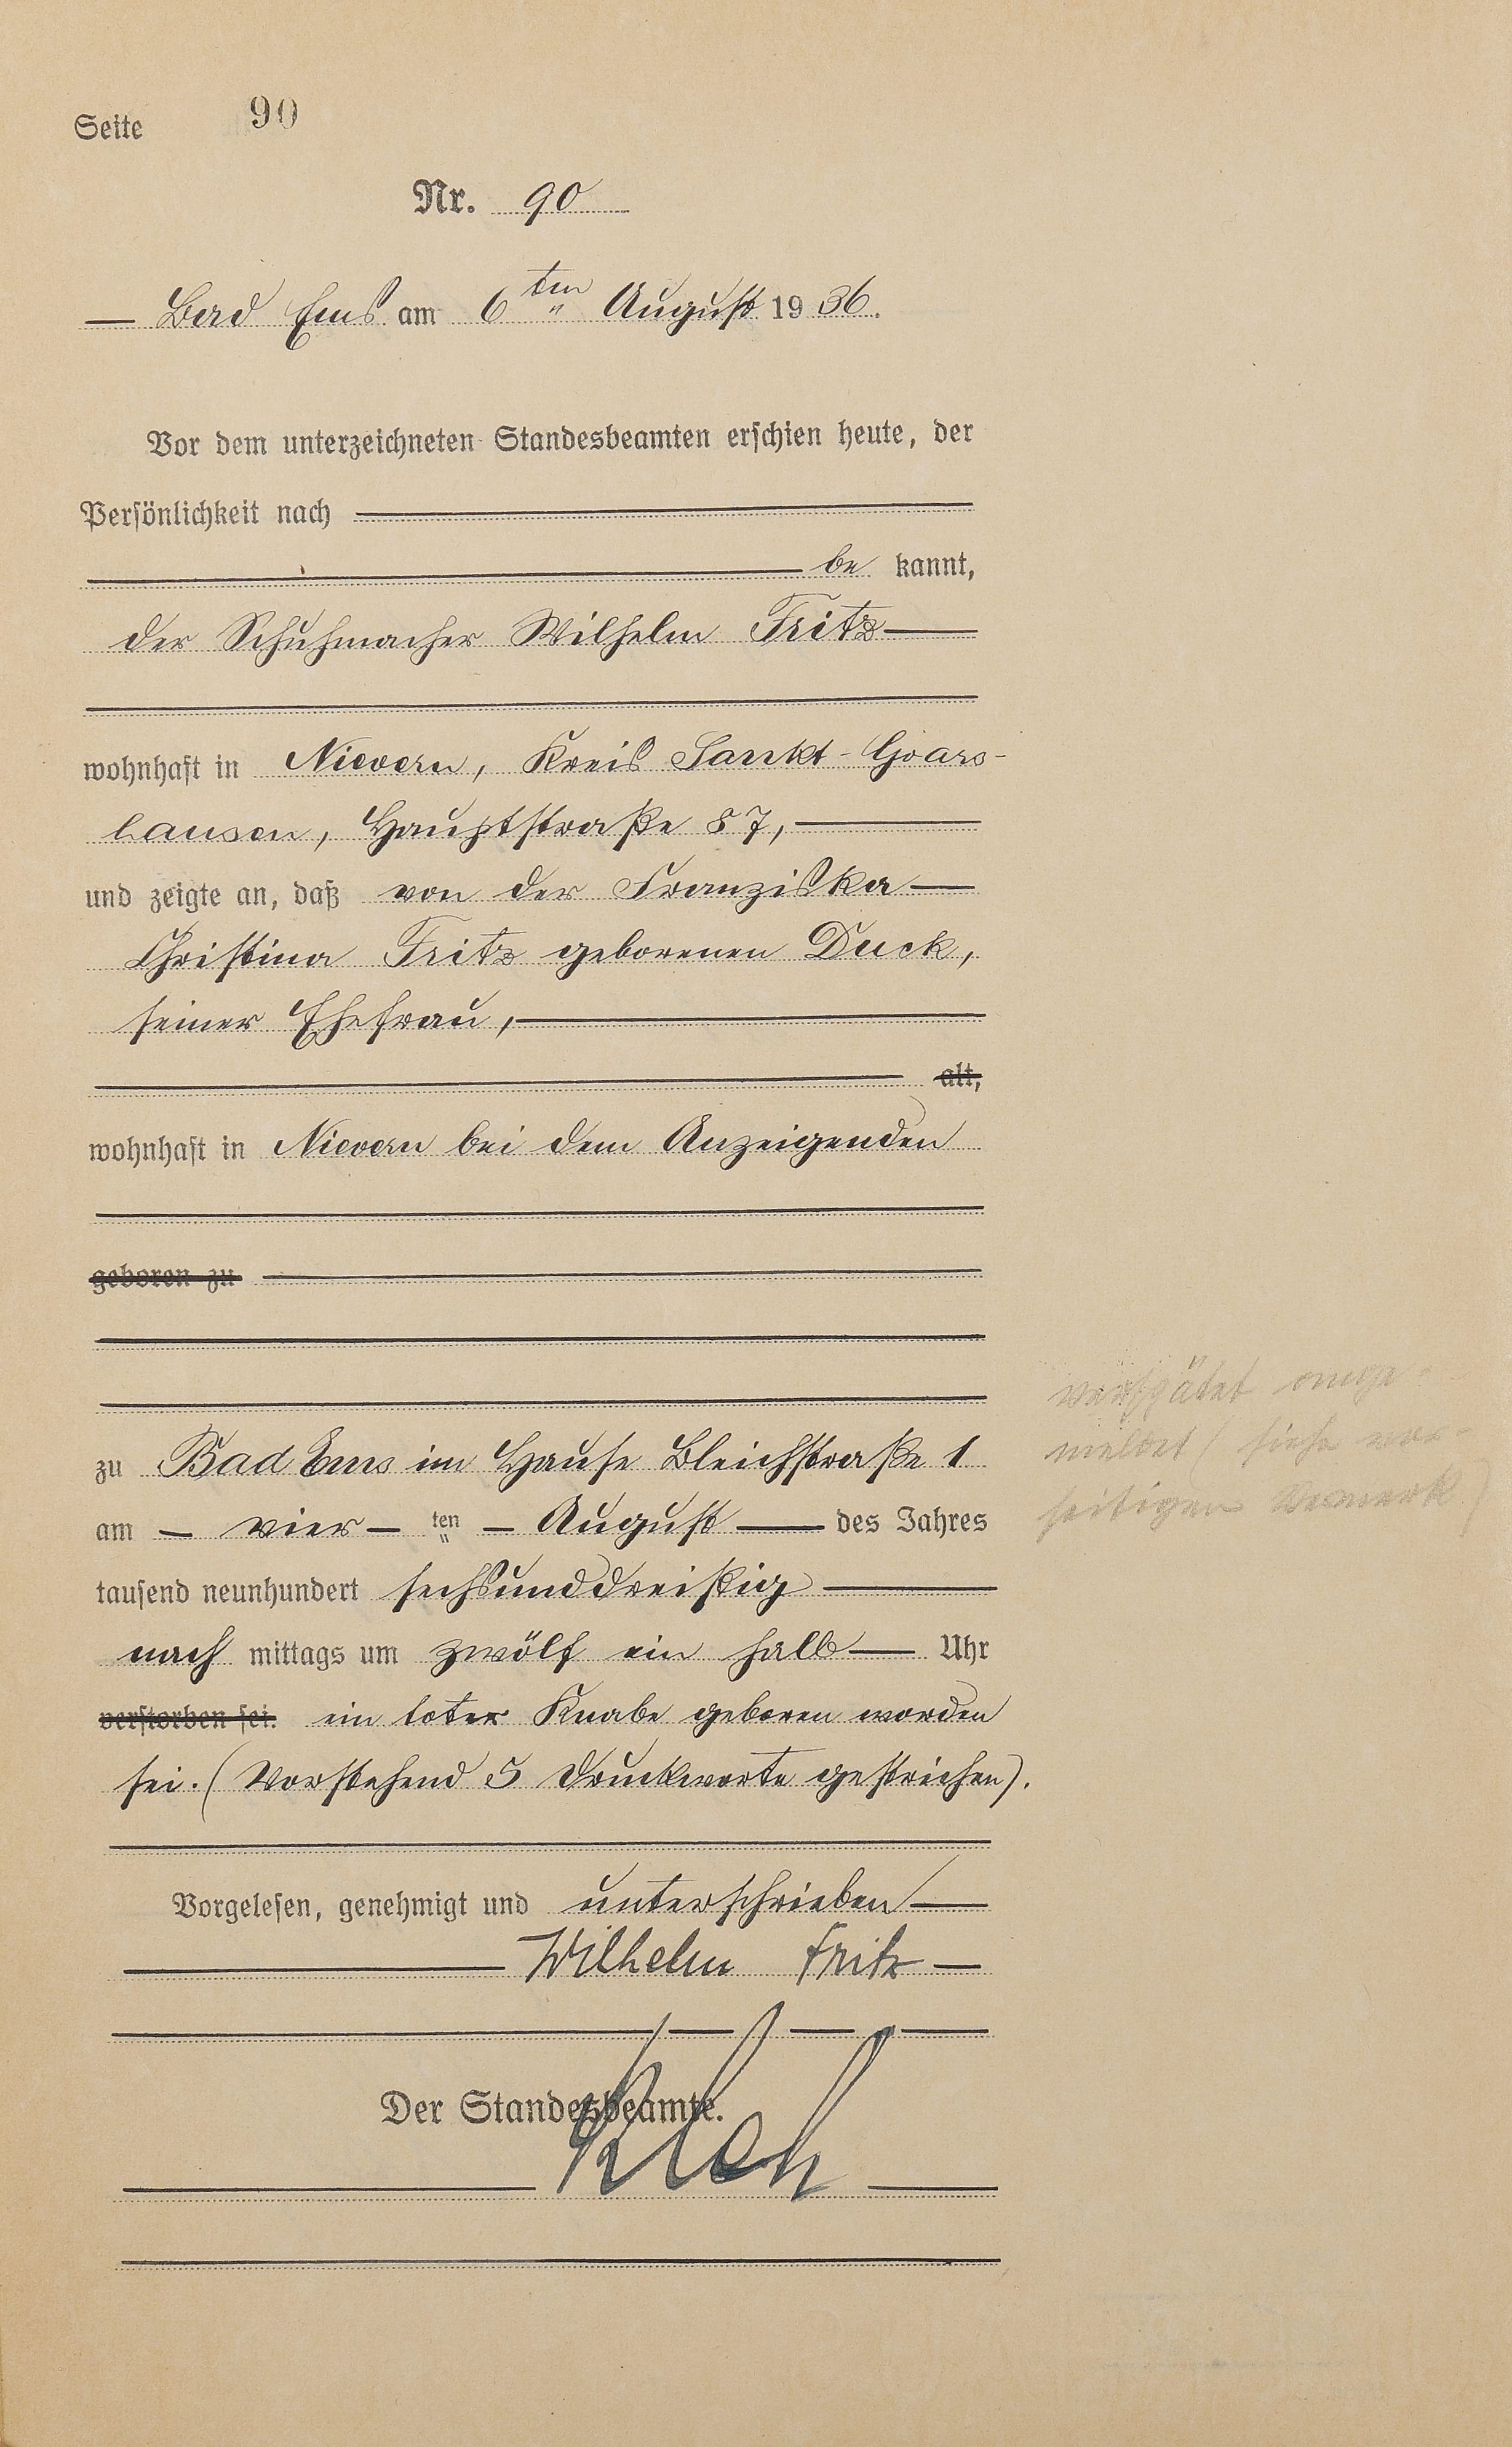 Seite 90
Nr. 90
— Bad Ems am 6ten August 1936.
Vor dem unterzeichneten Standesbeamten erschien heute, der
Persönlichkeit nach
be kannt,
der Schuhmacher Wilhelm Fritz
wohnhaft in Nievern, Kreis Sankt-Goars-
hausen, Hauptstraße 87,
und zeigte an, daß von der Franziska
Christina Fritz geborenen Duck,
seiner Ehefrau,
alt,
wohnhaft in Nievern bei dem Anzeigenden
geboren zu
zu Bad Ems im Hause Bleichstraße 1
am — vier — ten — August — des Jahres
tausend neunhundert sechsunddreißig
nach mittags um zwölf ein halb — Uhr
verstorben sei. ein toter Knabe geboren worden
sei. (Vorstehend 5 Druckworte gestrichen).
verspätet ange-
meldet (siehe vor-
seitigen Vermerk)
Vorgelesen, genehmigt und unterschrieben
Wilhelm Fritz
Der Standesbeamte.